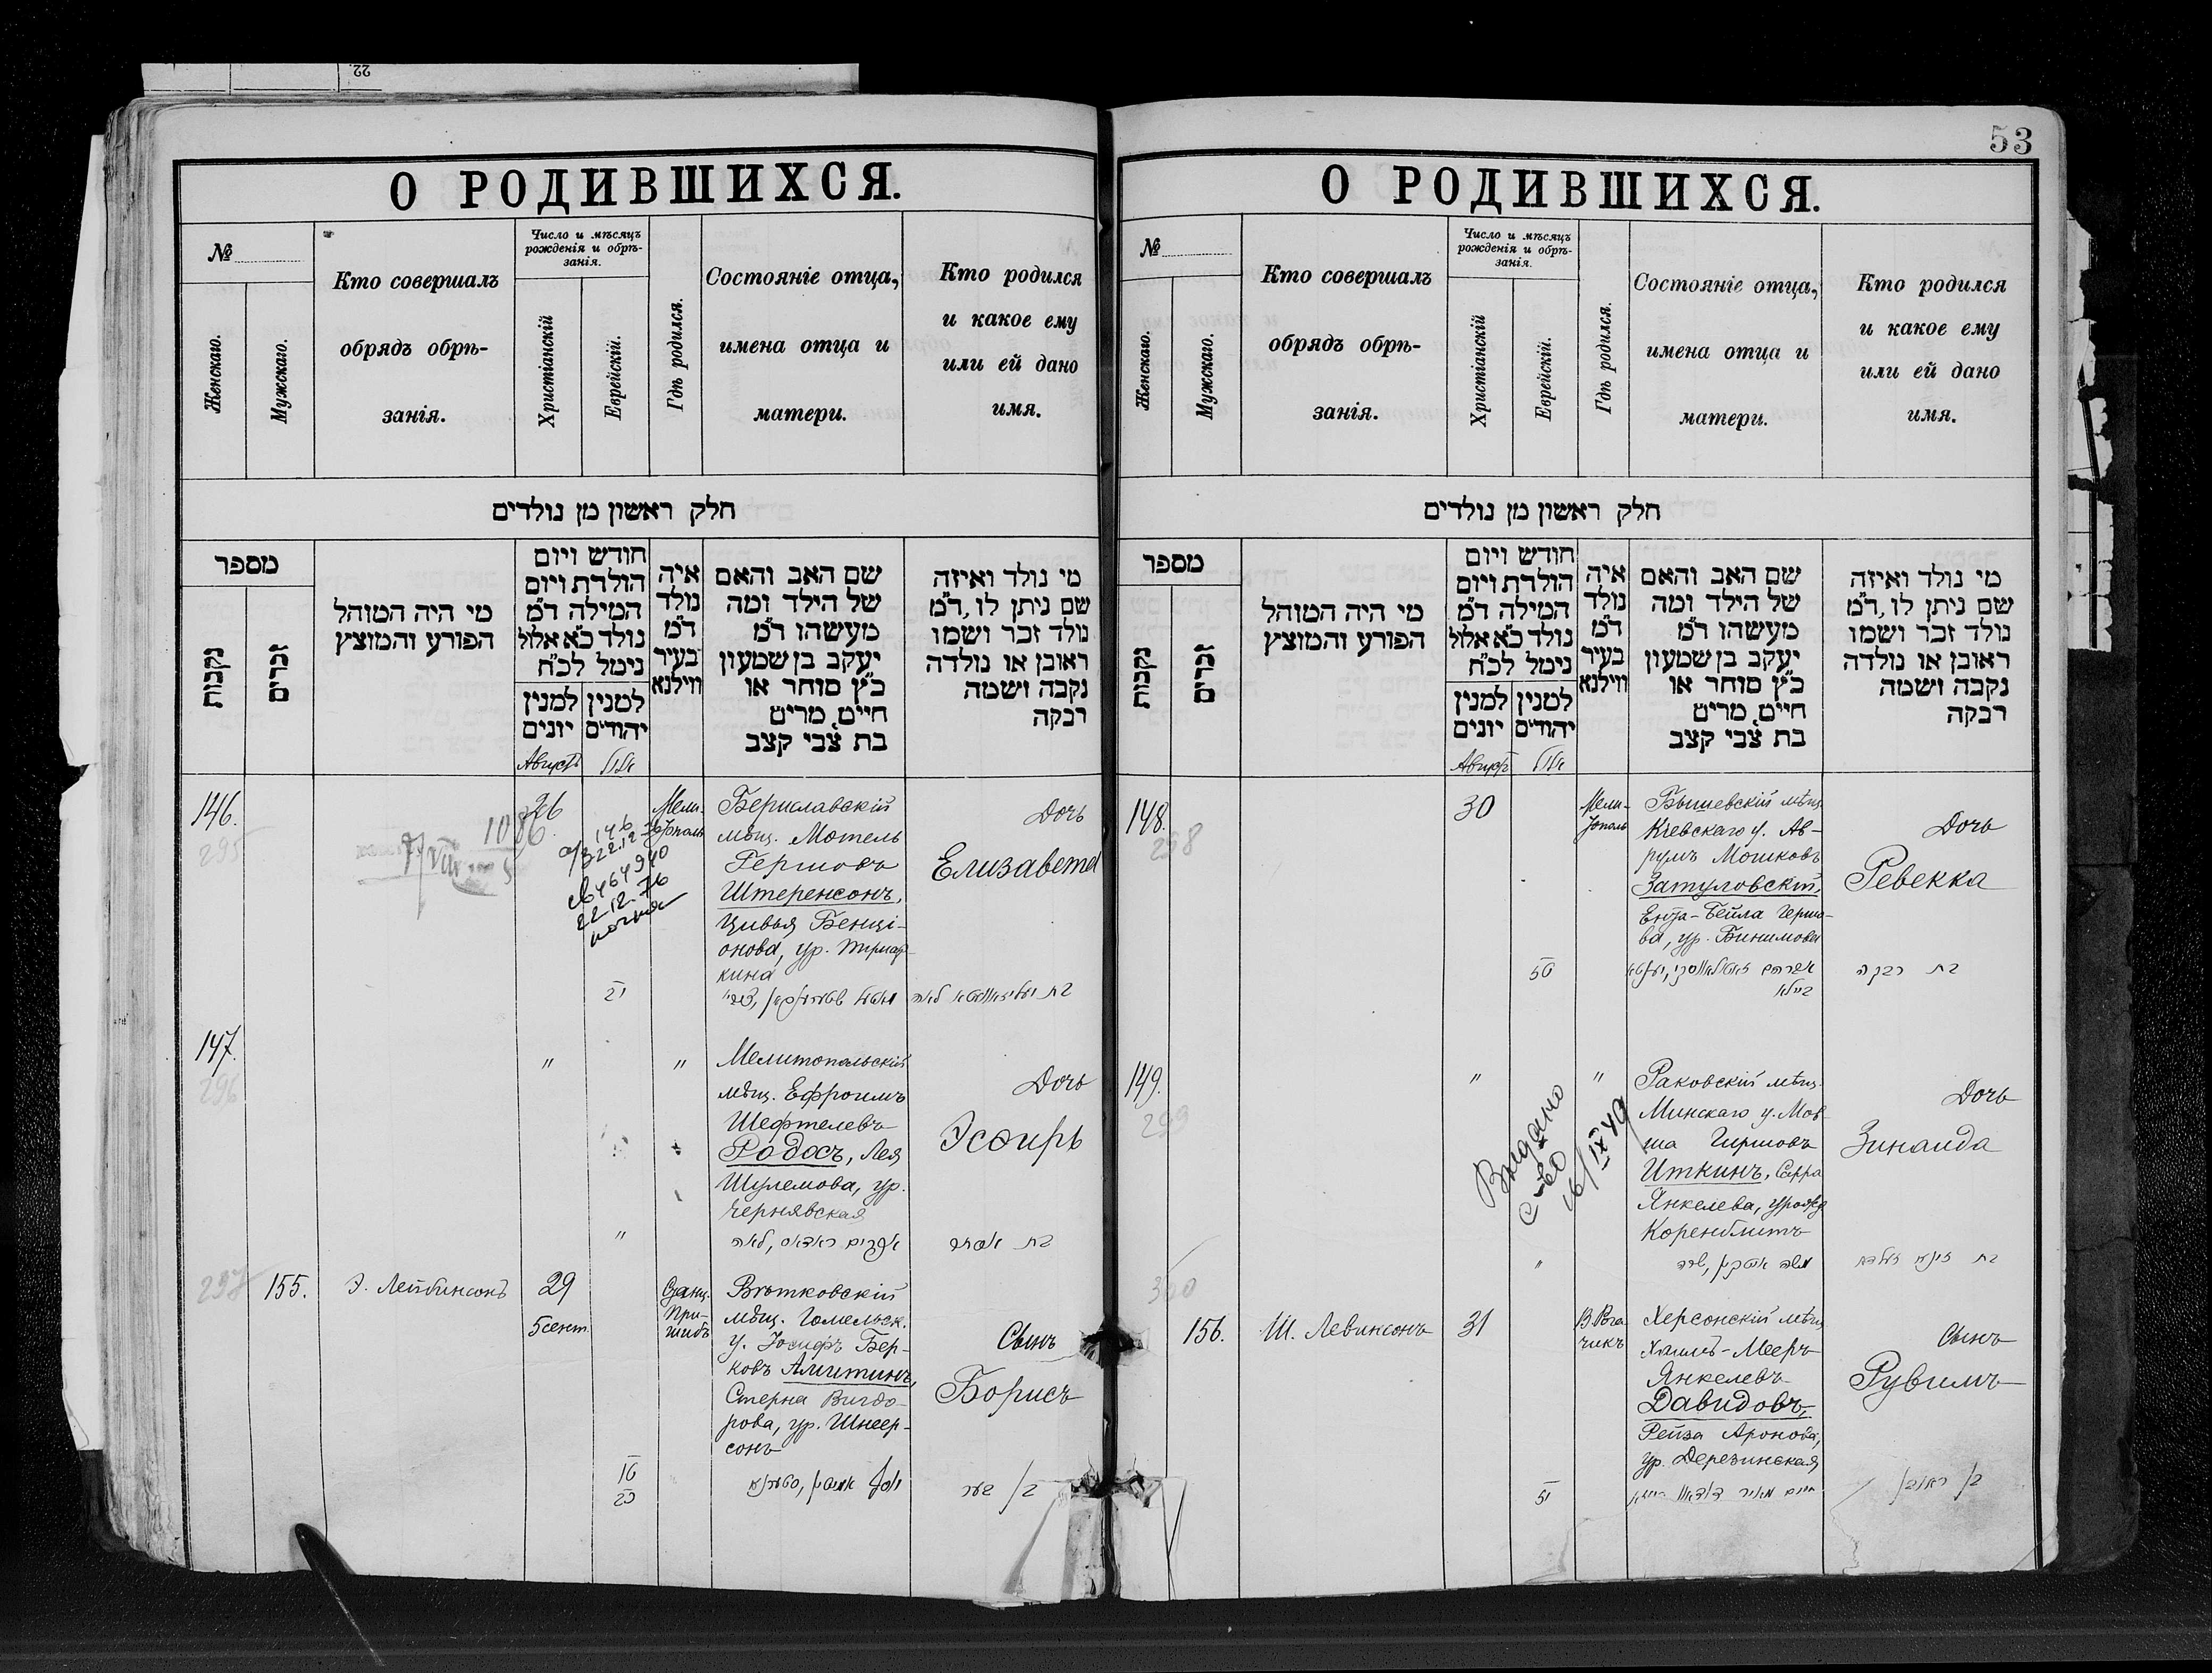 22.
О РОДИВШИХСЯ.
№
Женскаго.
Мужскаго.
Кто совершалъ
обрядъ обрѣ-
занія.
Число и мѣсяцъ
рожденія и обрѣ-
занія.
Христіанскій
Еврейскій.
Гдѣ родился.
Состояніе отца,
имена отца и
матери.
Кто родился
и какое ему
или ей дано
имя.
חלק ראשון מן נולדים
מספר
נקבות
זכרים
מי היה המוהל
הפורע והמוצץ
חודש ויום
הולדת ויום
המילה ד"מ
נולד כ"א אלול
נימל לכ"ח
למנין
יונים
למנין
יהודים
איה
נולד
ד"מ
בעיר
ווילנא
שם האב והאם
של הילד ומה
מעשהו ד"מ
יעקב בן שמעון
כ"ץ סוחר או
חיים, מרים
בת צבי קצב
מי נולד ואיזה
שם ניתן לו, ד"מ
נולד זכר ושמו
ראובן או נולדה
נקבה ושמה
רבקה
Августъ
אלול
146.
295
1086
26
146
322.12
464940
22.12.76
Мели-
тополь
Бериславскій
мѣщ. Мотель
Гершовъ
Штеренсонъ,
Цивья Бенці-
онова, ур.
кина
Дочь
Елизавета
יד
147.
296
"
"
Мелитопольскій
мѣщ. Ефроимъ
Шефтелевъ
Родосъ, Лея
Шулемова, ур.
Чернявская
Дочь
Эсѳирь
"
אפרים ראדאס, לאה
בת אסתר
297
155.
Э. Лейбинсонъ
29
5 сент.
Станц.
При-
шибъ
Вѣтковскій
мѣщ. Гомельск.
у. Іосифъ Бер-
ковъ Амитинъ,
Стерна Вигдо-
рова, ур. Шнеер-
сонъ
Сынъ
Борисъ
יוסף אמיטין, סטערנא
בן בער
53
О РОДИВШИХСЯ.
№
Женскаго.
Мужскаго.
Кто совершалъ
обрядъ обрѣ-
занія.
Число и мѣсяцъ
рожденія и обрѣ-
занія.
Христіанскій
Еврейскій.
Гдѣ родился.
Состояніе отца,
имена отца и
матери.
Кто родился
и какое ему
или ей дано
имя.
חלק ראשון מן נולדים
מספר
נקבות
זכרים
מי היה המוהל
הפורע והמוצץ
חודש ויום
הולדת ויום
המילה ד"מ
נולד כ"א אלול
נימל לכ"ח
למנין
יונים
למנין
יהודים
איה
נולד
ד"מ
בעיר
ווילנא
שם האב והאם
של הילד ומה
מעשהו ד"מ
יעקב בן שמעון
כ"ץ סוחר או
חיים, מרים
בת צבי קצב
מי נולד ואיזה
שם ניתן לו, ד"מ
נולד זכר ושמו
ראובן או נולדה
נקבה ושמה
רבקה
Августъ
אלול
148.
298
30
Мели-
тополь
Бышевскій мѣщ.
Кіевскаго у. Ав-
румъ Мошковъ
Затуловскій,
Ента-Бейла Гершо-
ва, ур. Бинимова
Дочь
Ревекка
בת רבקה
ביילא
149.
299
"
"
Выдано
с-во
16/IX 49
Раковскій мѣщ.
Минскаго у. Мов-
ша Гиршовъ
Иткинъ, Сарра
Янкелева, урожд.
Коренблитъ
Дочь
Зинаида
"
משה איטקין, שרה
300
156.
Ш. Левинсонъ
31
В. Рога-
чикъ
Херсонскій мѣщ.
Хаимъ-Мееръ
Янкелевъ
Давидовъ,
Рейза Аронова,
ур. Дерезинская
Сынъ
Рувимъ
חיים מאיר דאווידאוו רייזא
בן ראובן